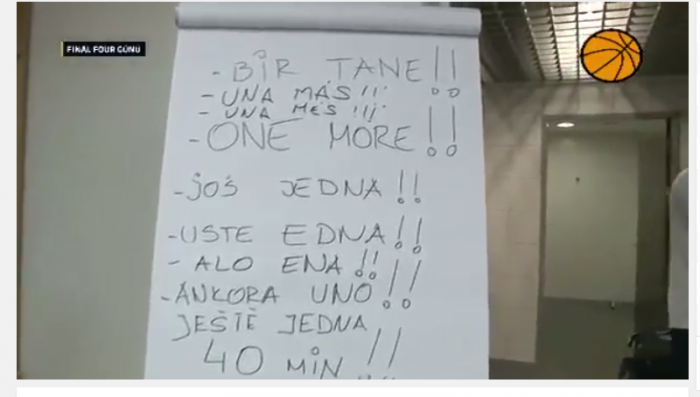 FINAL FOUR GÜNÜ
- BİR TANE!!
- UNA MÁS!!!
- UNA MÉS!!!
- ONE MORE!!
- JOŠ JEDNA!!
- USTE EDNA!!
- ALO ENA!!
- ANKORA UNO!!
JEŠTĚ JEDNA
40 MİN!!